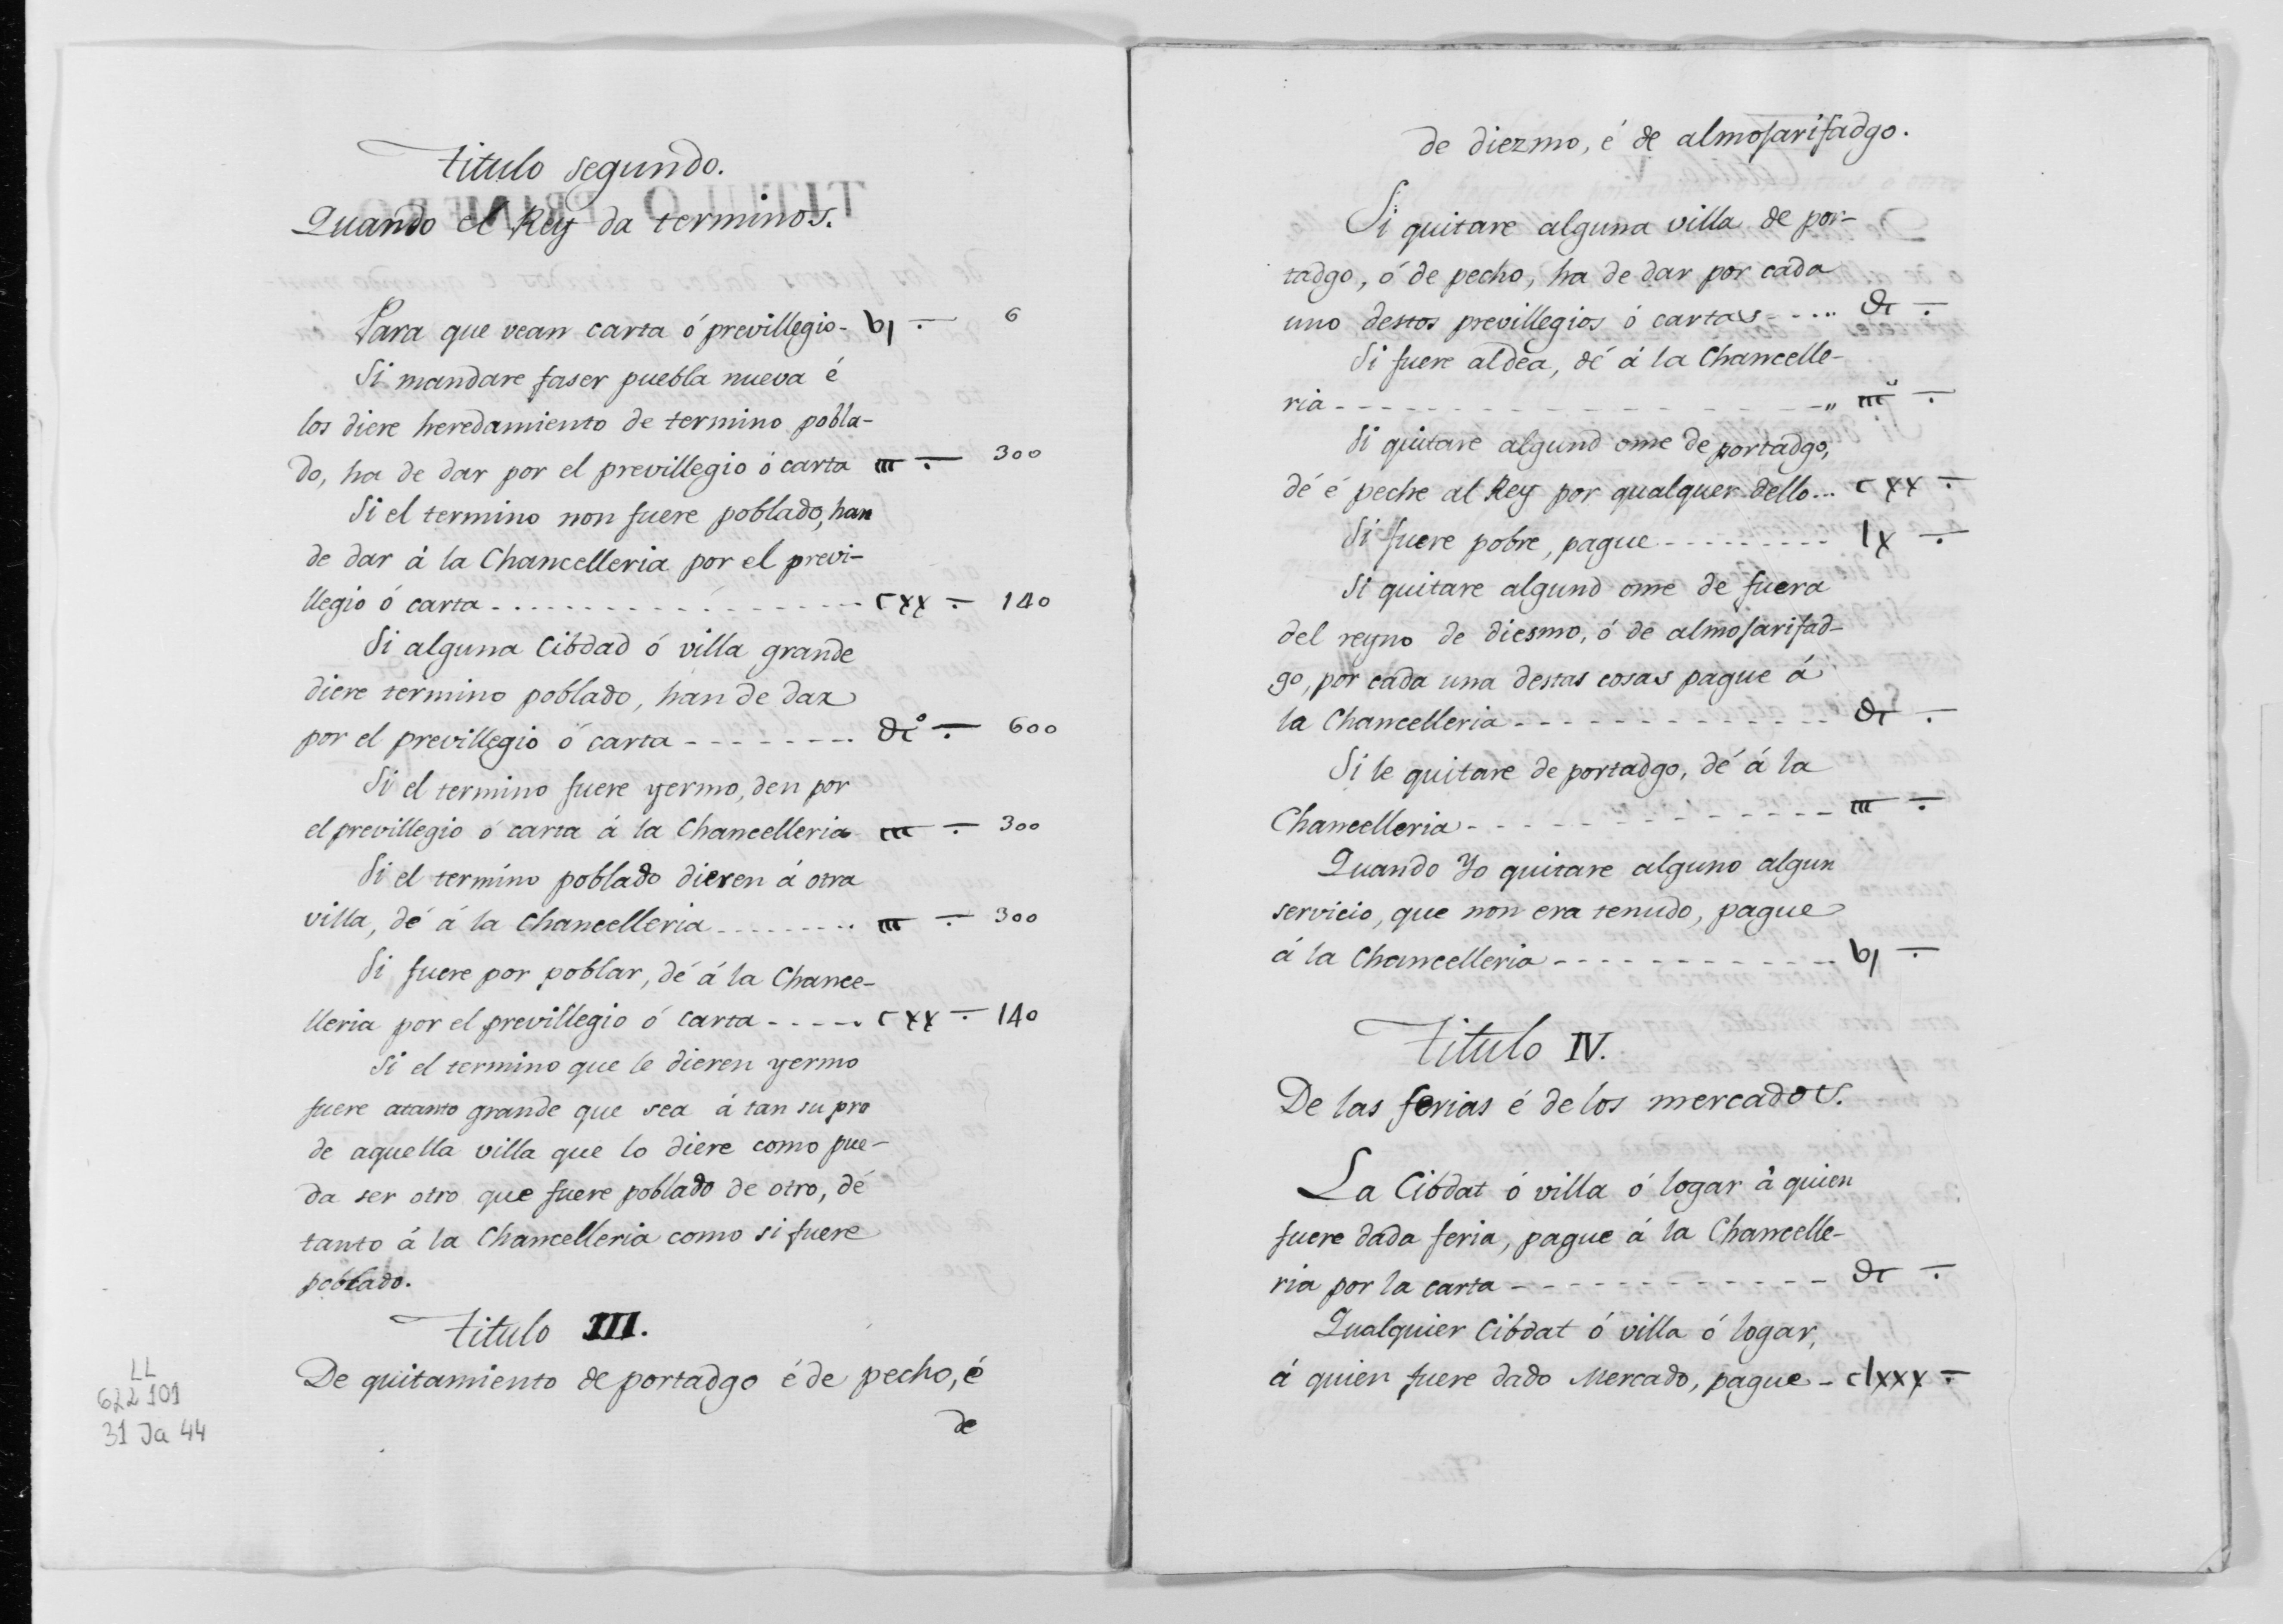 Titulo segundo.
Quando el Rey da terminos.
Para que vean carta ó previllegio - bj 6
Si mandare faser puebla nueva é
los diere heredamiento de termino pobla-
do, ha de dar por el previllegio ó carta ccc 300
Si el termino non fuere poblado, han
de dar á la Chancelleria por el previ-
llegio ó carta - - - - - - - - cxx 140
Si alguna Cibdad ó villa grande
diere termino poblado, han de dar
por el previllegio ó carta - - - - - - dc 600
Si el termino fuere yermo, den por
el previllegio ó carta á la Chancelleria ccc 300
Si el termino poblado dieren á otra
villa, dé á la Chancelleria - - - - - - ccc 300
Si fuere por poblar, dé á la Chance-
lleria por el previllegio ó carta - - - - - cxx 140
Si el termino que le dieren yermo
fuere atanto grande que sea á tan su pro
de aquella villa que lo diere como pue-
da ser otro que fuere poblado de otro, dé
tanto á la Chancelleria como si fuere
poblado.
Titulo III.
De quitamiento de portadgo é de pecho, é
de
LL
622 101
31 Ja 44
de diezmo, é de almosarifadgo.
Si quitare alguna villa de por-
tadgo, ó de pecho, ha de dar por cada
uno destos previllegios ó cartas - - ... dc
Si fuere aldea, dé á la Chancelle-
ria - - - - - - - - - - ccc
Si quitare algund ome de portadgo,
dé é peche al Rey por qualquer dello... cxx
Si fuere pobre, pague - - - - - - - - lx
Si quitare algund ome de fuera
del reyno de diesmo, ó de almosarifad-
go, por cada una destas cosas pague á
la Chancelleria - - - - - - - - - - dc
Si le quitare de portadgo, dé á la
Chancelleria - - - - - - - - - - ccc
Quando Yo quitare alguno algun
servicio, que non era tenudo, pague
á la Chancelleria - - - - - - - - - - bj
Titulo IV.
De las ferias é de los mercados.
La Cibdat ó villa ó logar á quien
fuere dada feria, pague á la Chancelle-
ria por la carta - - - - - - - - - - dc
Qualquier Cibdat ó villa ó logar,
á quien fuere dado Mercado, pague - clxxx